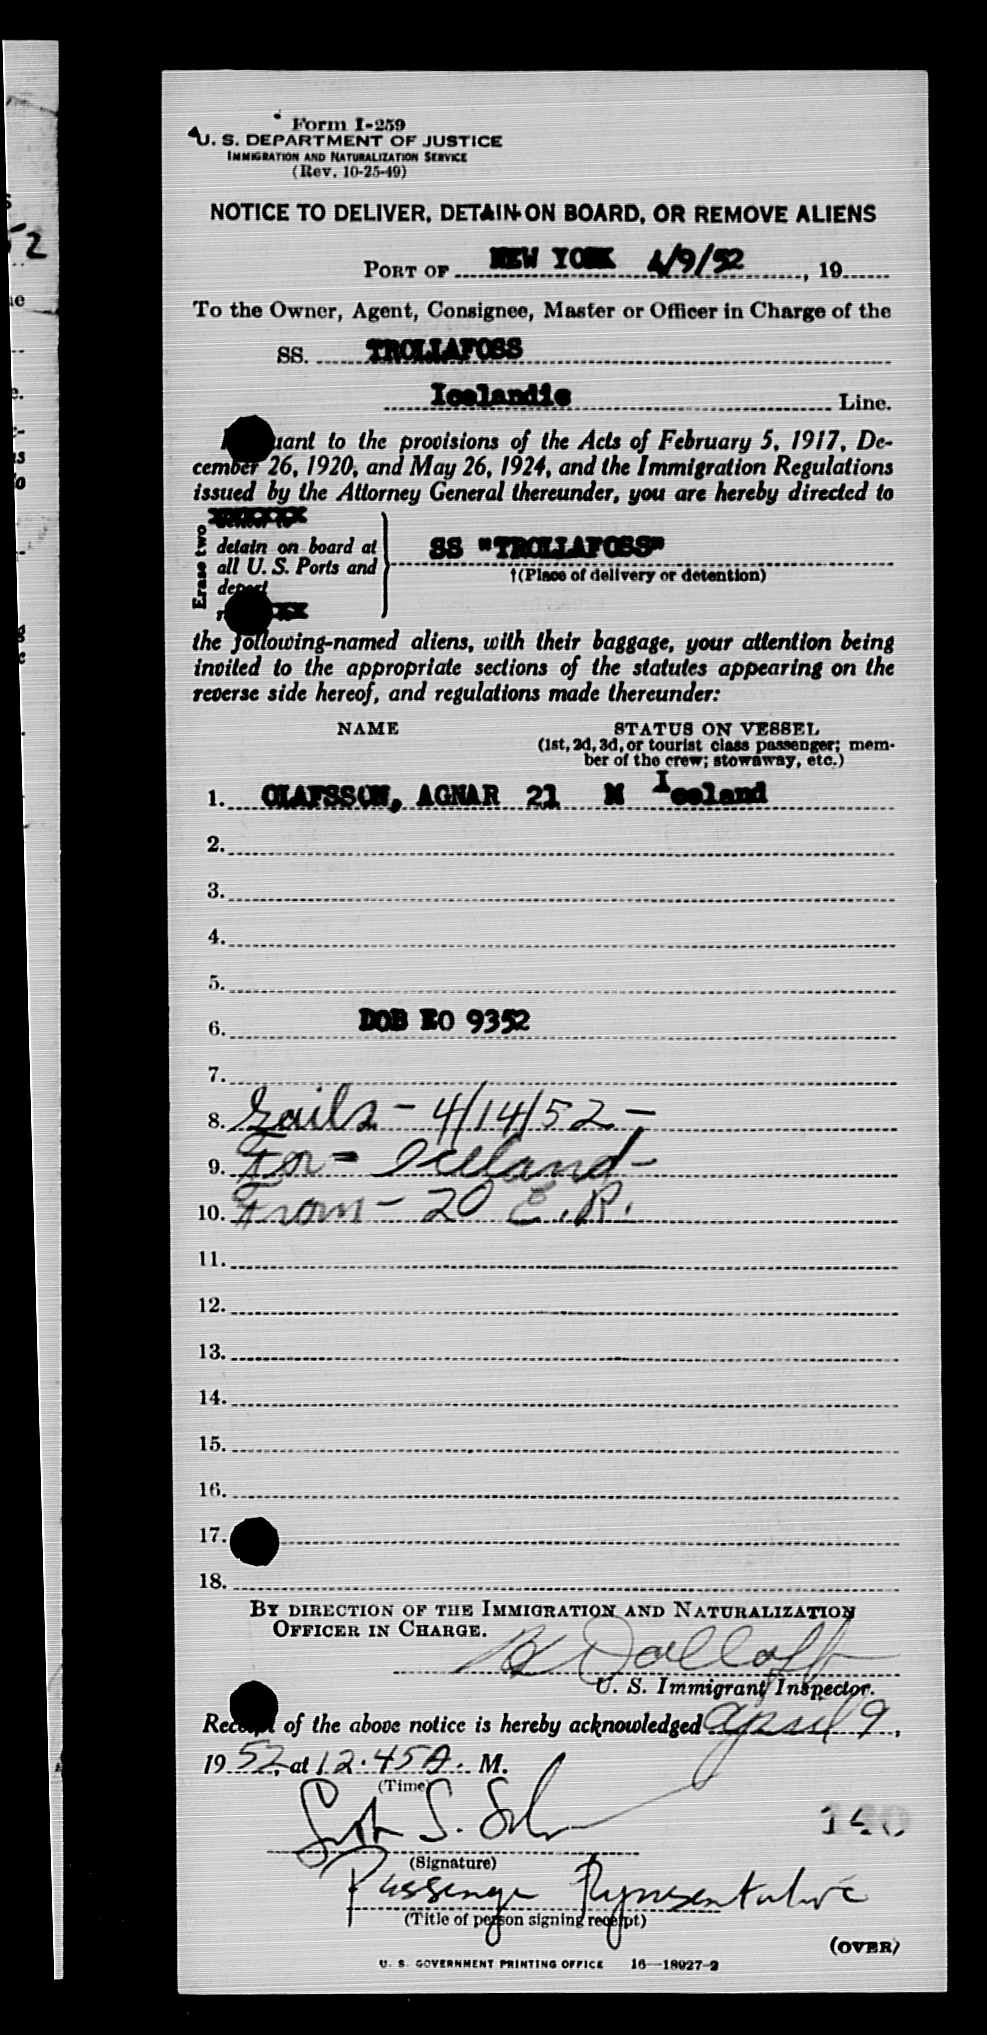 Form I-259
U. S. DEPARTMENT OF JUSTICE
IMMIGRATION AND NATURALIZATION SERVICE
(Rev. 10-25-49)
NOTICE TO DELIVER, DETAIN ON BOARD, OR REMOVE ALIENS
PORT OF NEW YORK 4/9/52, 19
To the Owner, Agent, Consignee, Master or Officer in Charge of the
SS. TROLLAFOSS
Icelandic Line.
uant to the provisions of the Acts of February 5, 1917, De-
cember 26, 1920, and May 26, 1924, and the Immigration Regulations
issued by the Attorney General thereunder, you are hereby directed to
Erase two
detain on board at
all U. S. Ports and
deport
SS "TROLLAFOSS"
†(Place of delivery or detention)
the following-named aliens, with their baggage, your attention being
invited to the appropriate sections of the statutes appearing on the
reverse side hereof, and regulations made thereunder:
NAME
STATUS ON VESSEL
(1st, 2d, 3d, or tourist class passenger; mem-
ber of the crew; stowaway, etc.)
1. OLAFSSON, AGNAR 21 M Iceland
2.
3.
4.
5.
6. DOB EO 9352
7.
8. Sails - 4/14/52 -
9. For - Iceland -
10. From - 20 E.R.
11.
12.
13.
14.
15.
16.
17.
18.
BY DIRECTION OF THE IMMIGRATION AND NATURALIZATION
OFFICER IN CHARGE.
U. S. Immigrant Inspector.
Receipt of the above notice is hereby acknowledged April 9,
19 52, at 12.45 A. M.
(Time)
(Signature)
Passenger Representative
(Title of person signing receipt)
(OVER)
U. S. GOVERNMENT PRINTING OFFICE 16—18927-2